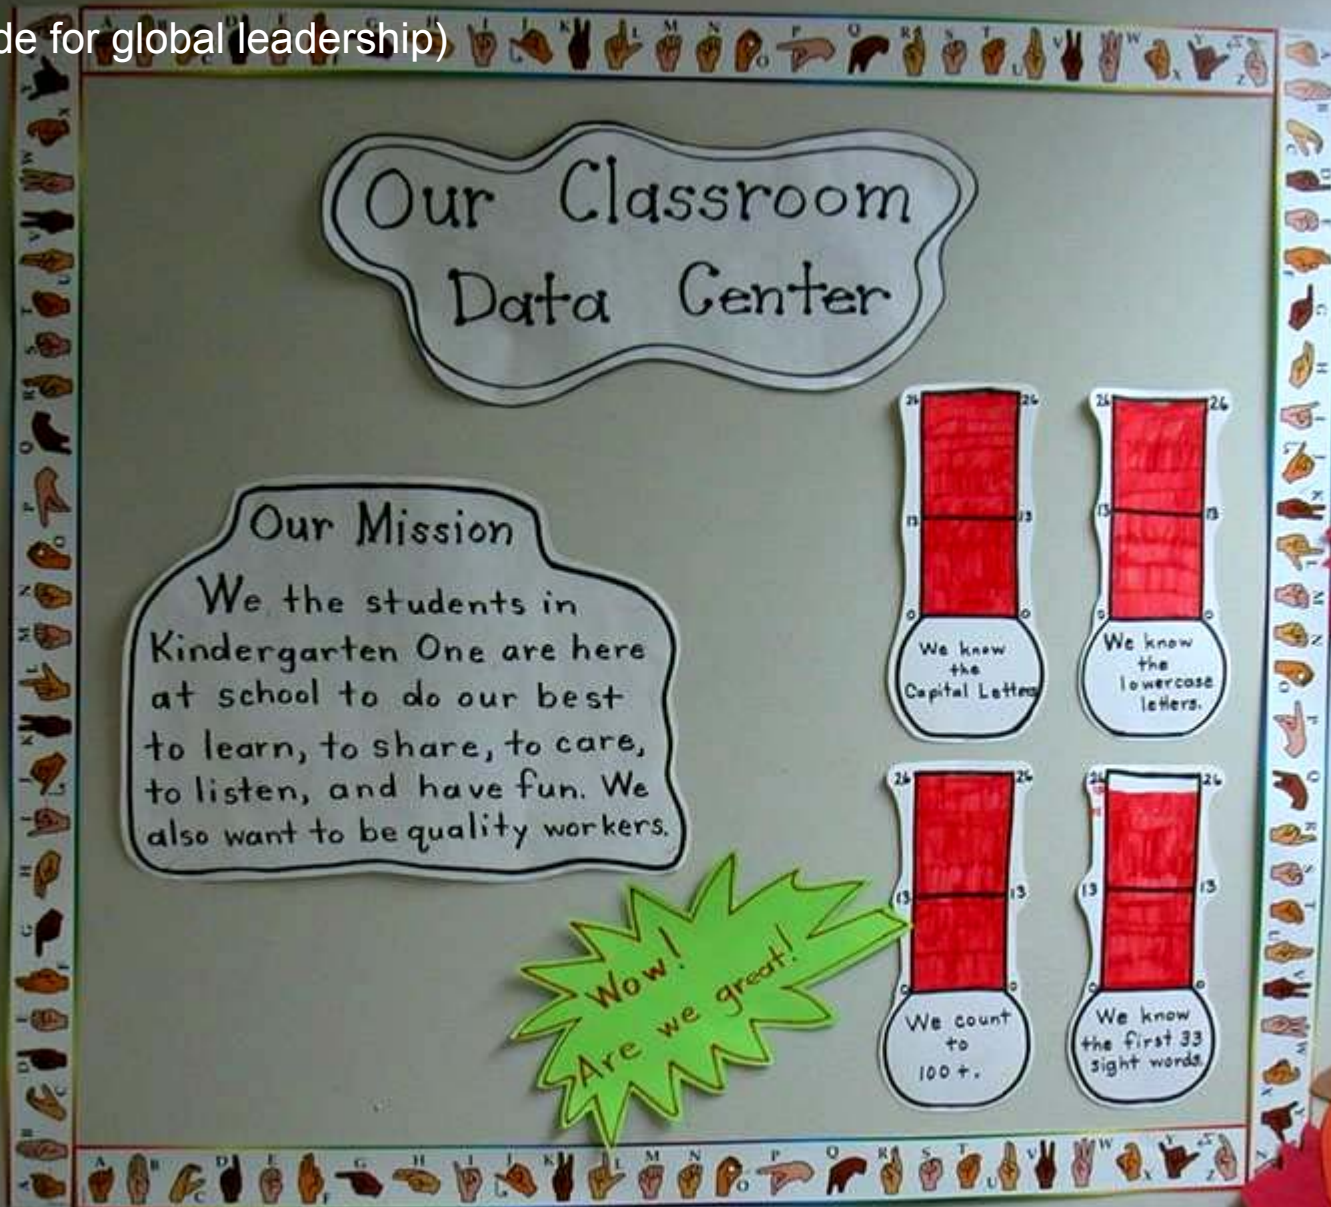 de for global leadership)
Our Classroom
Data Center
Our Mission
We the students in
Kindergarten One are here
at school to do our best
to learn, to share, to care,
to listen, and have fun. We
also want to be quality workers.
Wow!
Are we great!
26 26
13 13
0 0
We know
the
Capital Letters
26 26
13 13
0 0
We know
the
lowercase
letters.
26 26
13 13
0 0
We count
to
100+.
26 26
13 13
0 0
We know
the first 33
sight words.
A B C D E F G H I J K L M N O P Q R S T U V W X Y Z